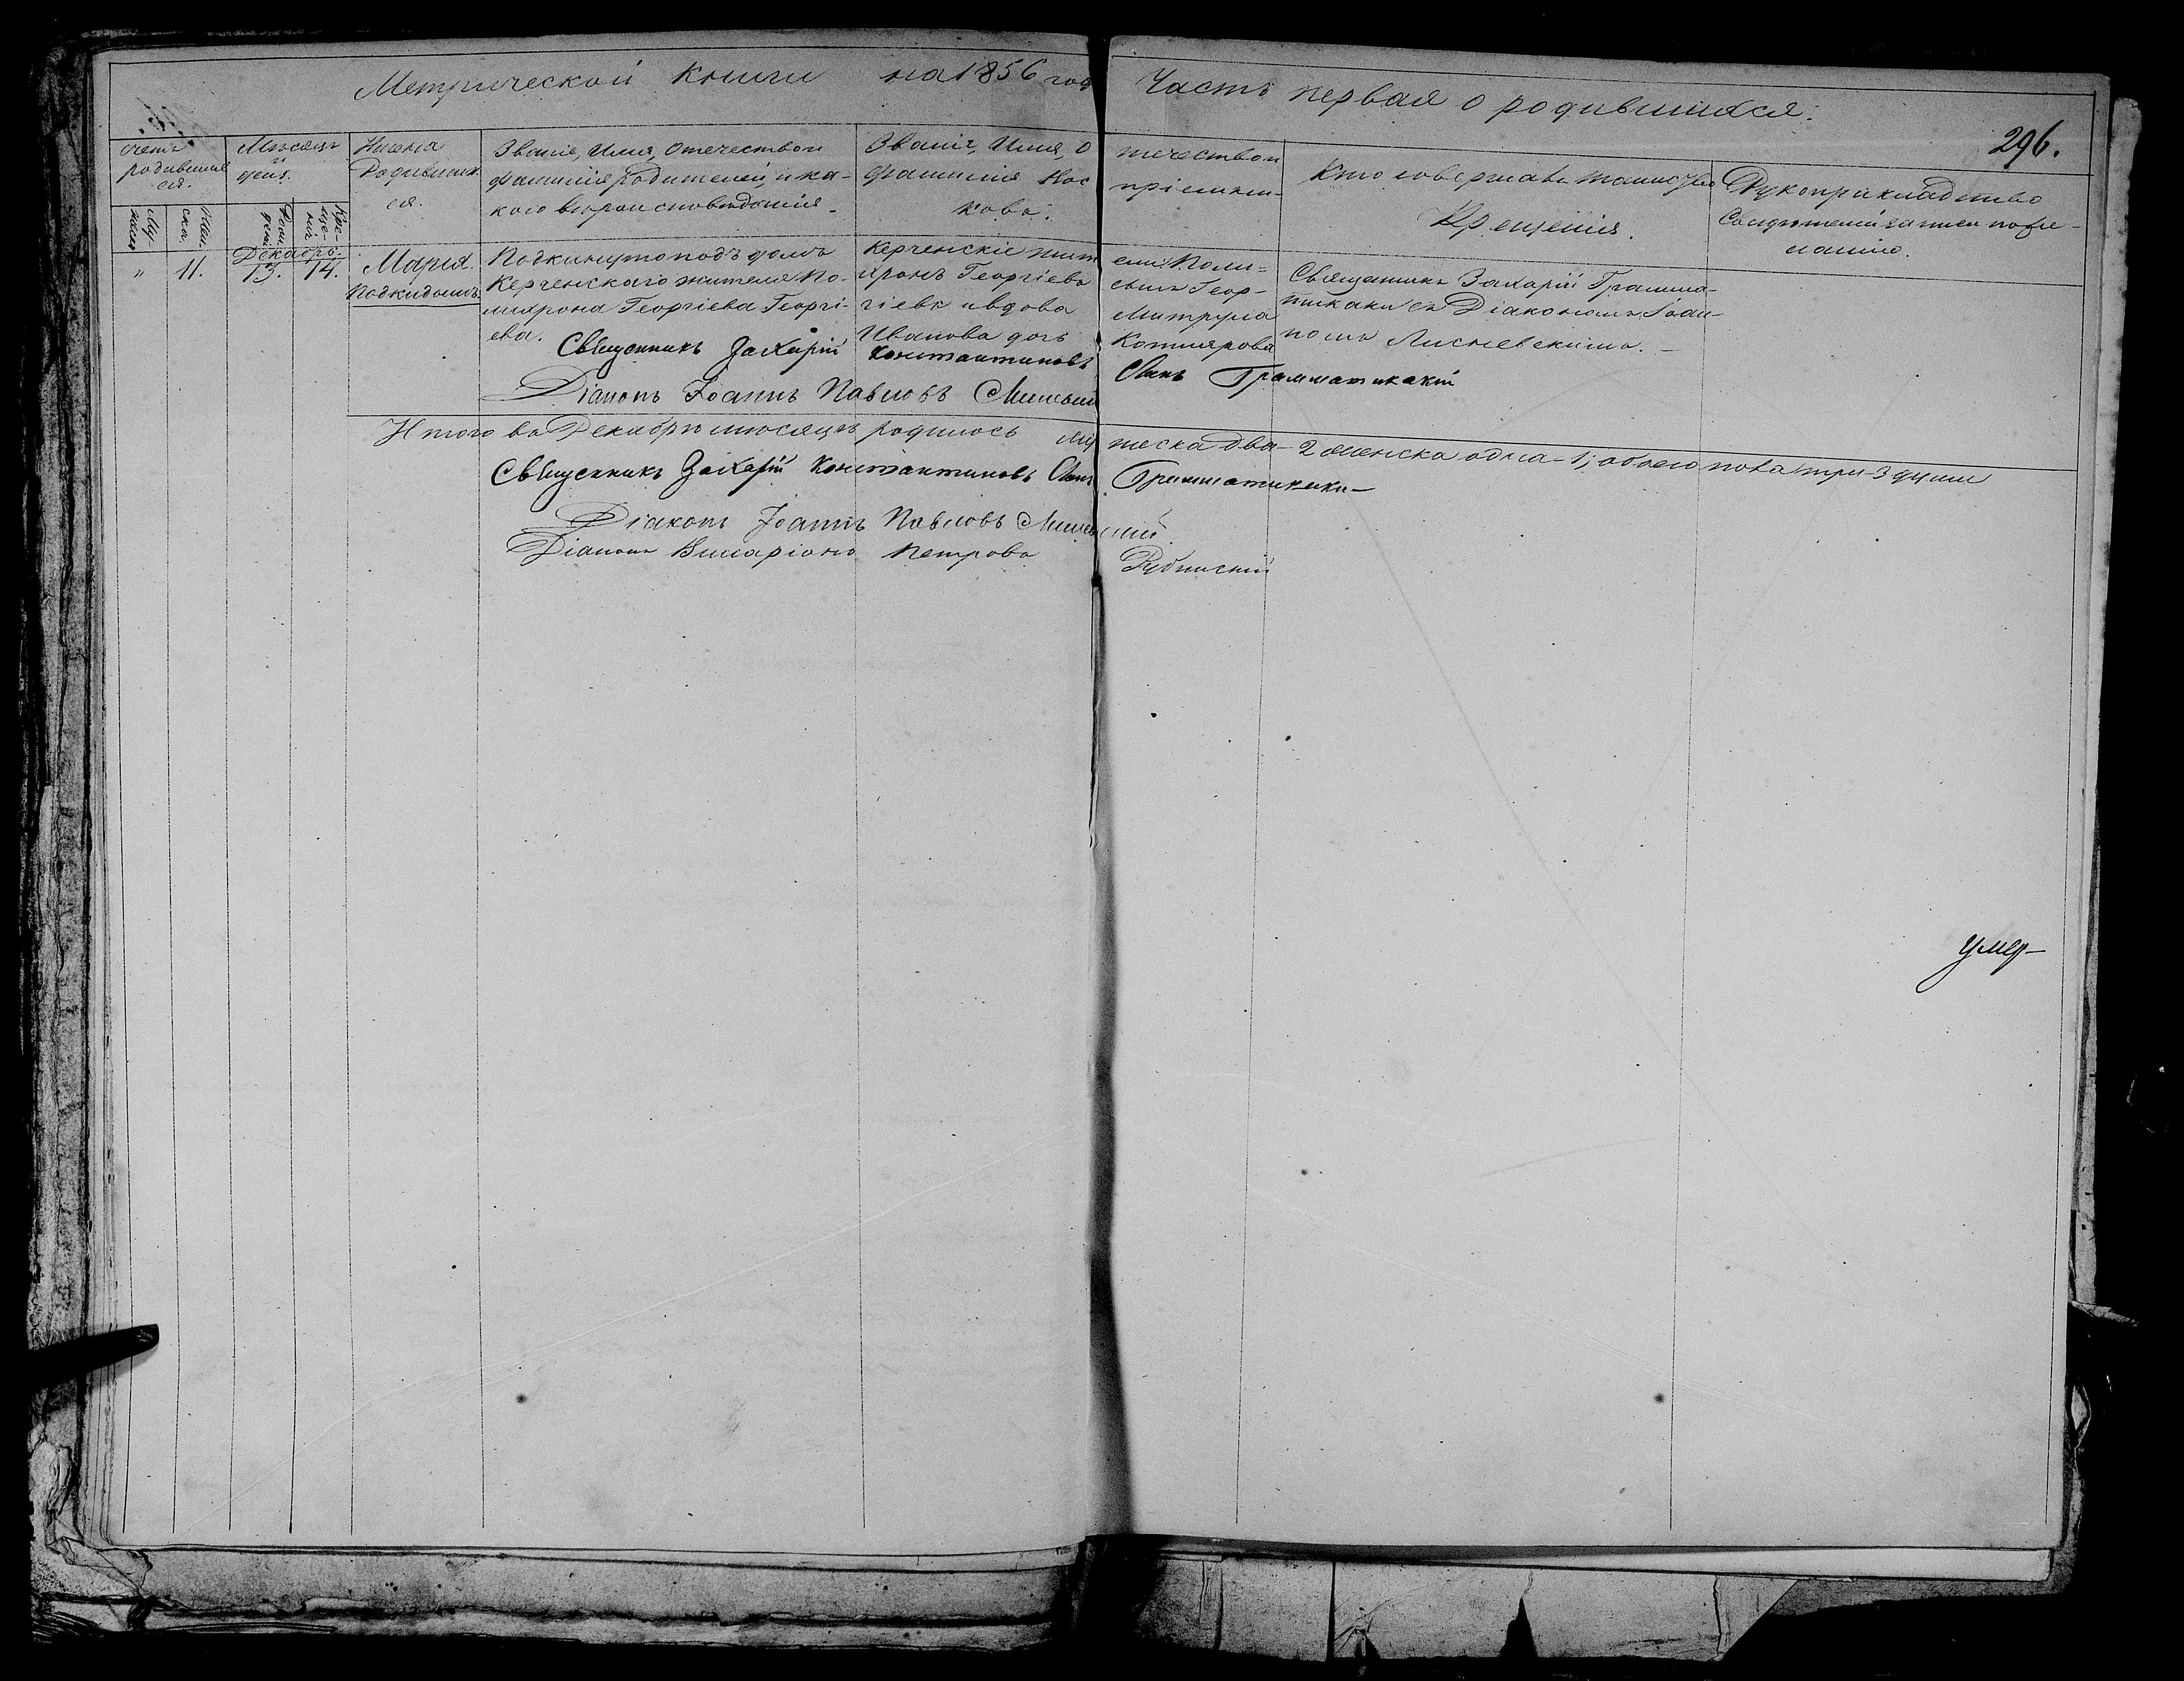 Метрической Книги на 1856 годъ Часть первая о родившихся.
296.
Счетъ родившихся.
Мужеска
Женска.
Мѣсяцъ и день.
Рожденія
Крещенія
Имена Родившихся.
Званіе, Имя, Отечество и
фамилія родителей, и ка-
кого вѣроисповѣданія.
Званіе, Имя, Отечество и
Фамилія воспріемни-
ковъ.
Кто совершалъ таинство
Крещенія.
Рукоприкладство
Свидѣтелей записи по же-
ланію.
Декабрь.
" 11. 13. 14.
Марія
Подкидышъ
Подкинуто подъ домъ
Керченскаго жителя По-
лихрона Георгіева Георгі-
ева.
Керченскіе жители: Поли-
хронъ Георгіевъ сынъ Геор-
гіевъ и вдова Митрула
Иванова дочь Котлярова
Священникъ Захарій Грамма-
тикаки съ Діакономъ Іоан-
номъ Лисневскимъ.
Священникъ Захарій Константиновъ Сынъ Грамматикакій
Діаконъ Іоаннъ Павловъ
Итого въ Декабрѣ мѣсяцѣ родилось мужеска два - 2 женска одна - 1; обоего пола три - 3 души
Священникъ Захарій Константиновъ Сынъ Грамматикаки
Діаконъ Іоаннъ Павловъ
Діаконъ Иларіонъ Петровъ
умер